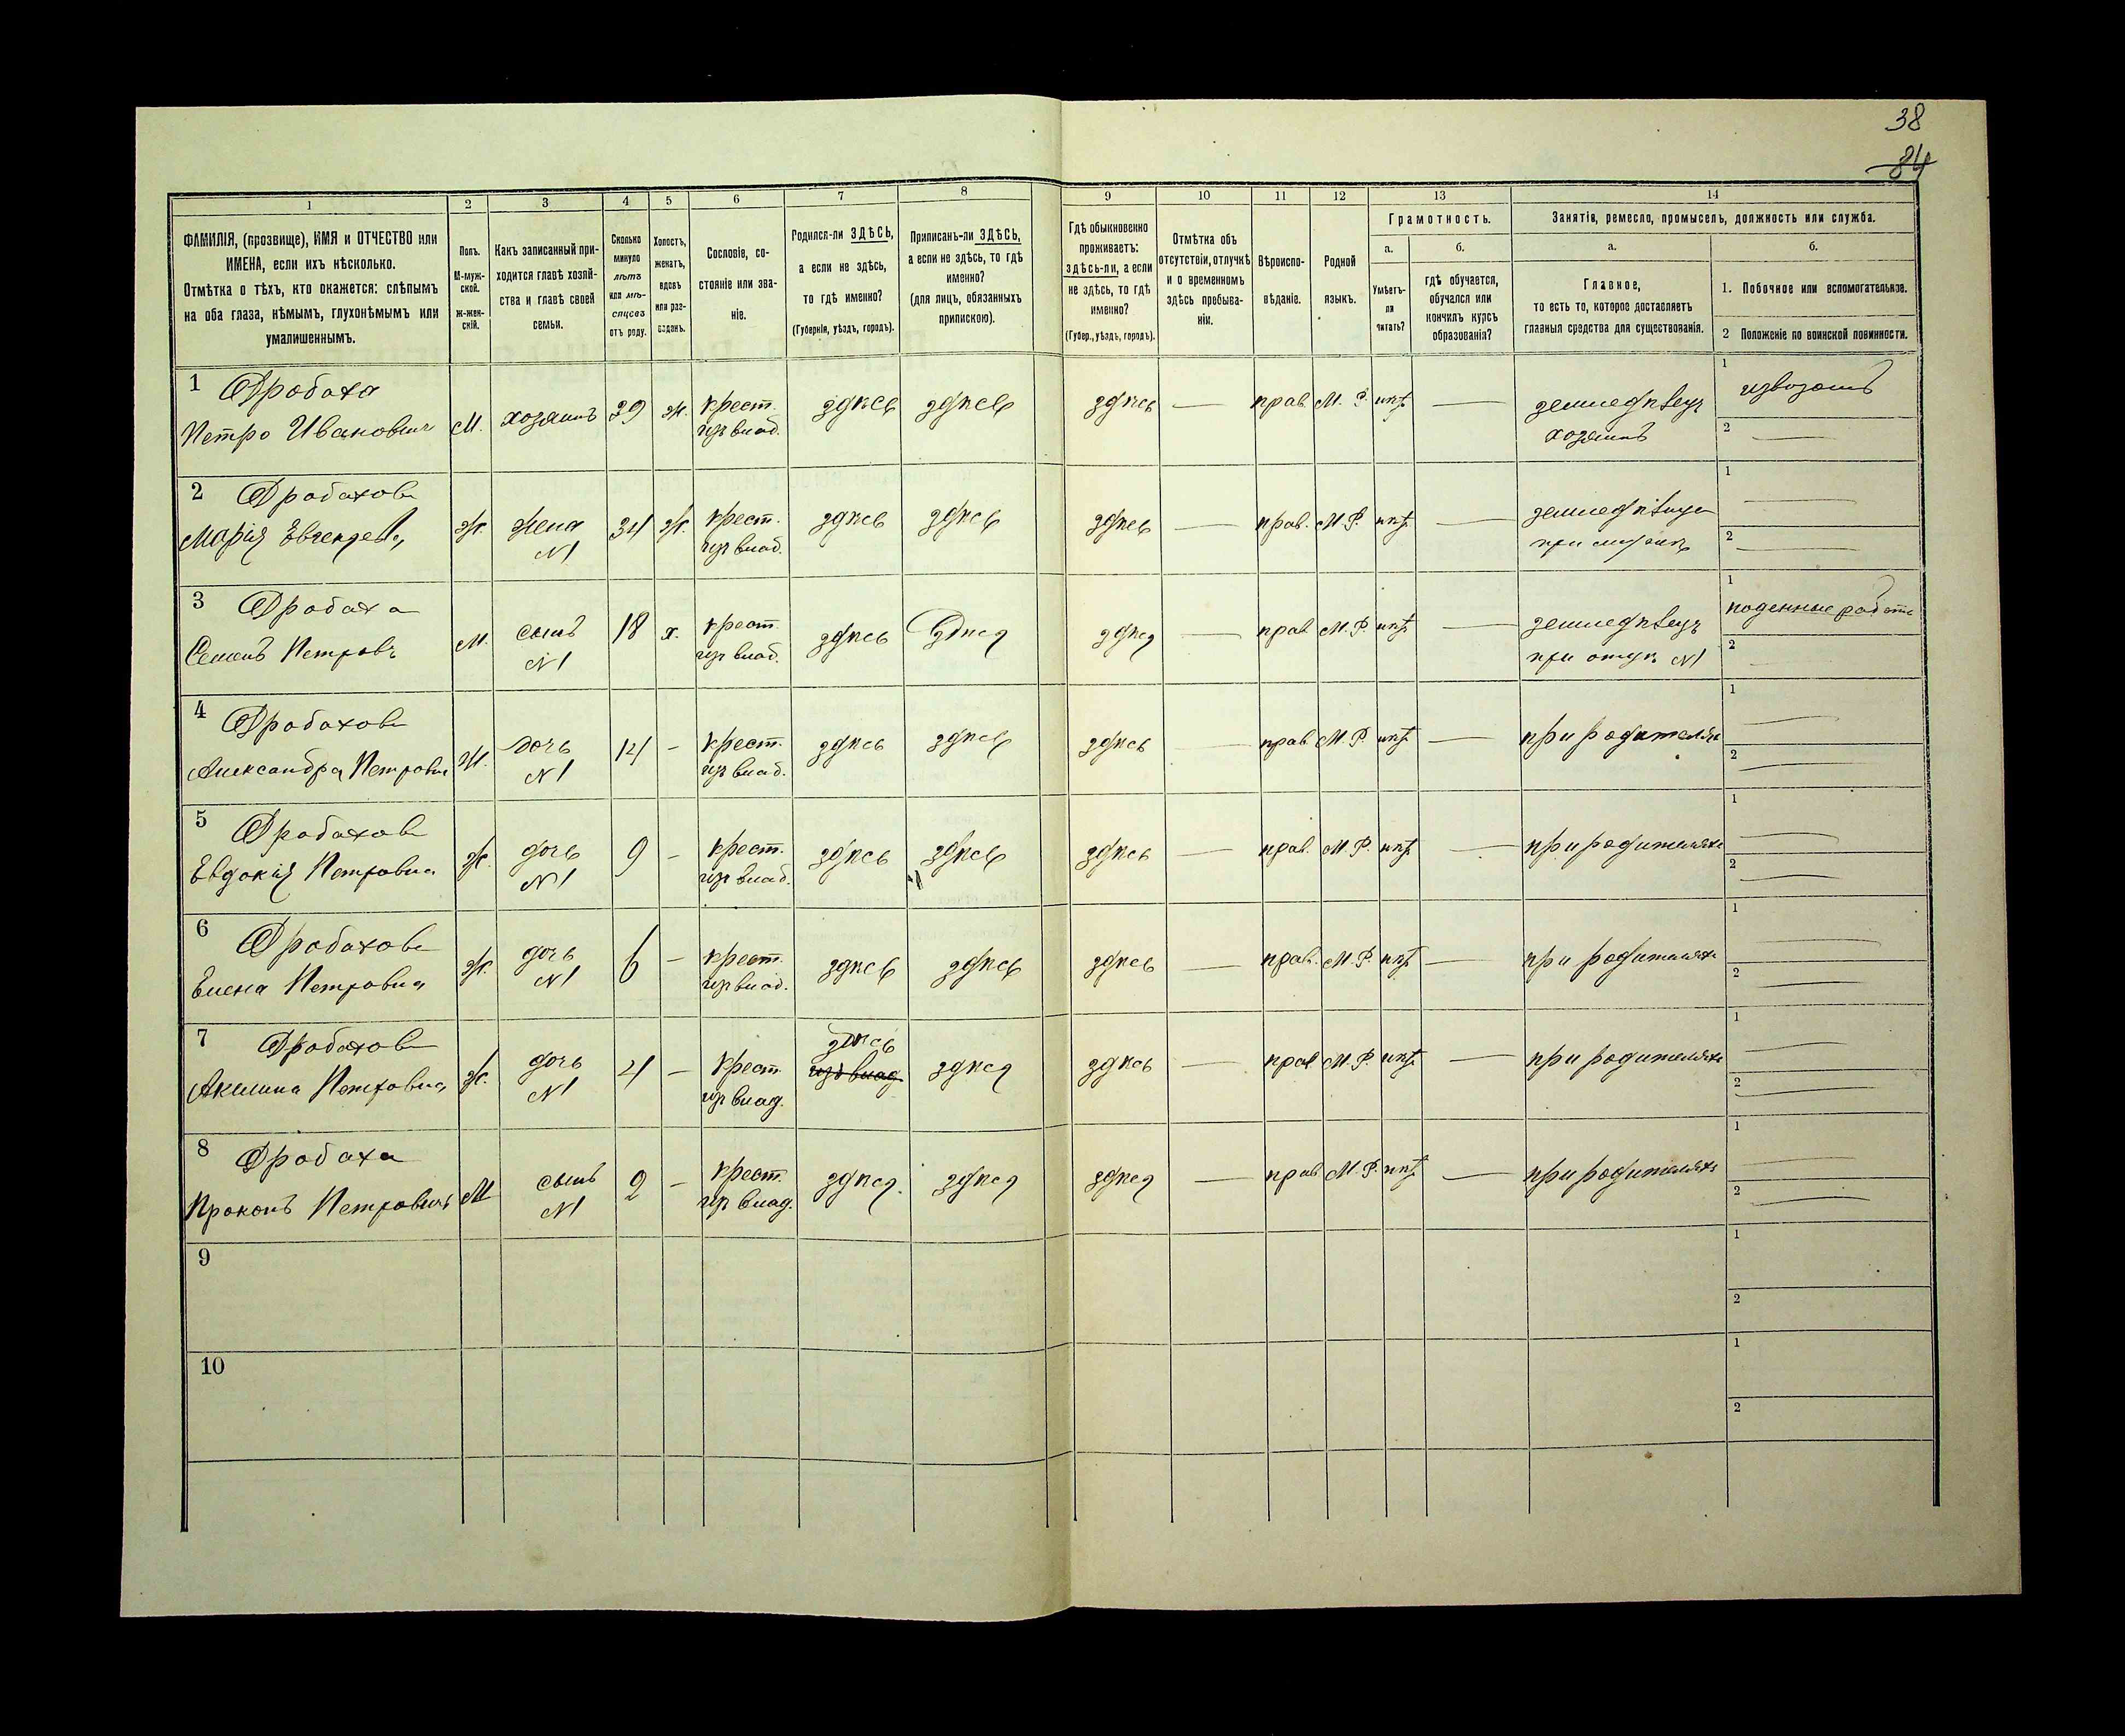 38
84
1 2 3 4 5 6 7 8 9 10 11 12 13 14
ФАМИЛІЯ, (прозвище), ИМЯ и ОТЧЕСТВО или
ИМЕНА, если ихъ нѣсколько.
Отмѣтка о тѣхъ, кто окажется: слѣпымъ
на оба глаза, нѣмымъ, глухонѣмымъ или
умалишеннымъ.
Полъ.
М-муж-
ской.
Ж-жен-
скій.
Какъ записанный при-
ходится главѣ хозяй-
ства и главѣ своей
семьи.
Сколько
минуло
лѣтъ
или мѣ-
сяцевъ
отъ роду.
Холостъ,
женатъ,
вдовъ
или раз-
веденъ.
Сословіе, со-
стояніе или зва-
ніе.
Родился-ли ЗДѢСЬ,
а если не здѣсь,
то гдѣ именно?
(Губернія, уѣздъ, городъ).
Приписанъ-ли ЗДѢСЬ,
а если не здѣсь, то гдѣ
именно?
(для лицъ, обязанныхъ
припискою).
Гдѣ обыкновенно
проживаетъ:
здѣсь-ли, а если
не здѣсь, то гдѣ
именно?
(Губер., уѣздъ, городъ).
Отмѣтка объ
отсутствіи, отлучкѣ
и о временномъ
здѣсь пребыва-
ніи.
Вѣроиспо-
вѣданіе.
Родной
языкъ.
Грамотность.
а.
Умѣетъ-
ли
читать?
б.
гдѣ обучается,
обучался или
кончилъ курсъ
образованія?
Занятія, ремесло, промыселъ, должность или служба.
а.
Главное,
то есть то, которое доставляетъ
главныя средства для существованія.
б.
1. Побочное или вспомогательное.
2 Положеніе по воинской повинности.
1 Дробаха 1 извозомъ
Петро Ивановичъ М. хозяинъ 39 ж. крест. здѣсь здѣсь здѣсь — прав. М. Р. нѣт — земледѣлецъ
изъ влад. хозяинъ 2 —
2 Дробахова 1 —
Марія Ж. жена 34 ж. крест. здѣсь здѣсь здѣсь — прав. М. Р. нѣт —
N1 изъ влад. при 2 —
3 Дробаха 1 поденные работы
Семенъ Петровъ М. сынъ 18 х. крест. здѣсь здѣсь здѣсь — прав. М. Р. нѣт — земледѣлецъ
N1 изъ влад. при отцѣ N1 2
4 Дробахова 1 —
Александра Петровна Ж. дочь 14 - крест. здѣсь здѣсь здѣсь — прав. М. Р. нѣт — при родителяхъ
N1 изъ влад. 2 —
5 Дробахова 1 —
Евдокія Петровна Ж. дочь 9 - крест. здѣсь здѣсь здѣсь — прав. М. Р. нѣт — при родителяхъ
N1 изъ влад. 2 —
6 Дробахова 1 —
Елена Петровна Ж. дочь 6 - крест. здѣсь здѣсь здѣсь — прав. М. Р. нѣт — при родителяхъ
N1 изъ влад. 2 —
7 Дробахова здѣсь 1 —
Акилина Петровна Ж. дочь 4 - крест. изъ влад. здѣсь здѣсь — прав. М. Р. нѣт — при родителяхъ
N1 изъ влад. 2 —
8 Дробаха 1 —
Прокопъ Петровичъ М сынъ 2 - крест. здѣсь здѣсь здѣсь — прав. М. Р. нѣт — при родителяхъ
N1 изъ влад. 2 —
9 1
2
10 1
2